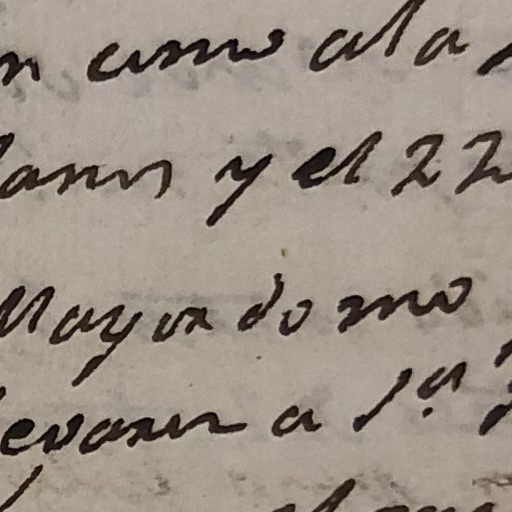 n como ala
laron y el 22
Mayordomo
levaron a Sª